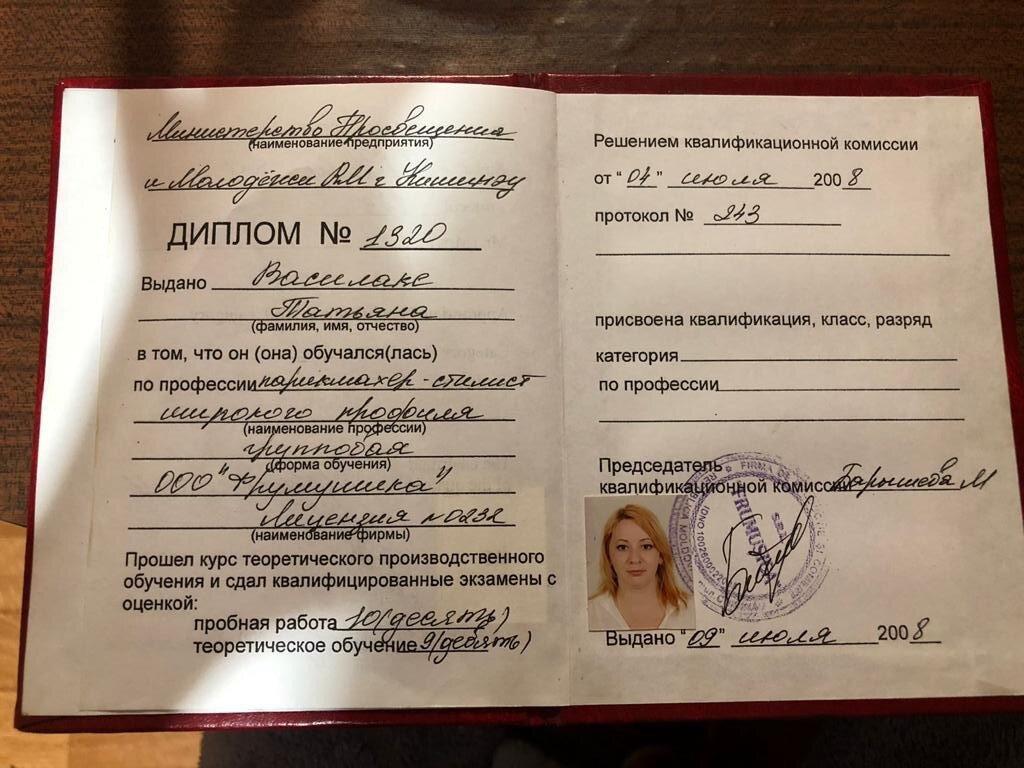 Министерство Просвещения
(наименование предприятия)
и Молодёжи РМ г Кишинэу
ДИПЛОМ № 1320
Выдано Василаке
Татьяна
(фамилия, имя, отчество)
в том, что он (она) обучался(лась)
по профессии парикмахер-стилист
широкого профиля
(наименование профессии)
групповая
(форма обучения)
ООО "Фрумушика"
Лицензия №0232
(наименование фирмы)
Прошел курс теоретического производственного
обучения и сдал квалифицированные экзамены с
оценкой:
пробная работа 10(десять)
теоретическое обучение 9(девять)
Решением квалификационной комиссии
от "04" июля 2008
протокол № 243
присвоена квалификация, класс, разряд
категория
по профессии
Председатель
квалификационной комиссии
FIRMA DE
S.R.L.
Выдано "09" июля 2008